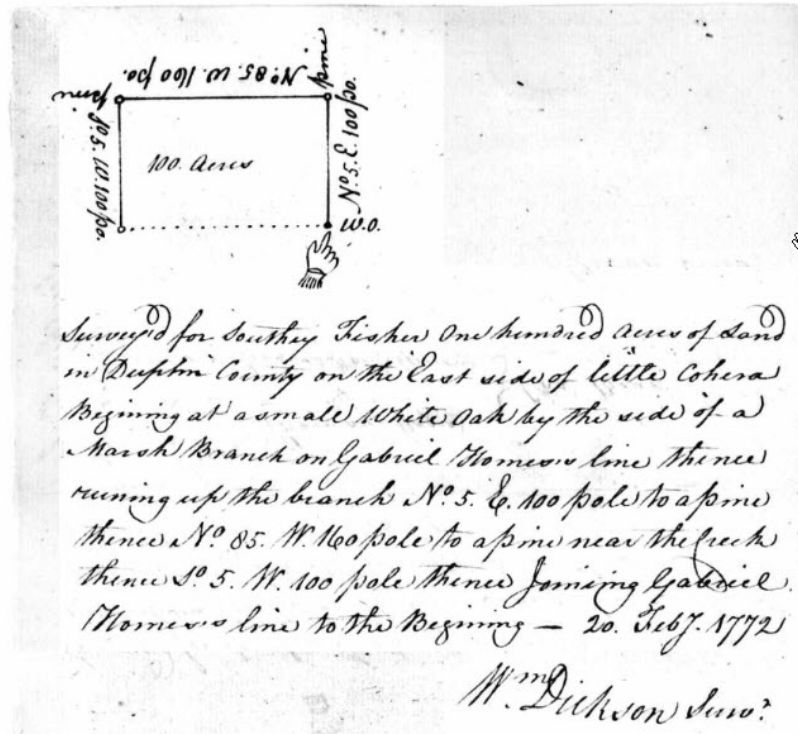 No. 85. W. 160 po.
pine
pine
So. 5. W. 100 po.
100. Acres
No. 5. E. 100 po.
W.O.
Survey'd for Southey Fisher One hundred Acres of Land
in Duplin County on the East side of little Cohera
Begining at a small White Oak by the side of a
Marsh Branch on Gabriel Homes's line thence
runing up the branch No. 5. E. 100 pole to a pine
thence No. 85. W. 160 pole to a pine near the Creek
thence So. 5. W. 100 pole thence Joining Gabriel
Homes's line to the Begining — 20. Feby. 1772
Wm. Dickson Survr.